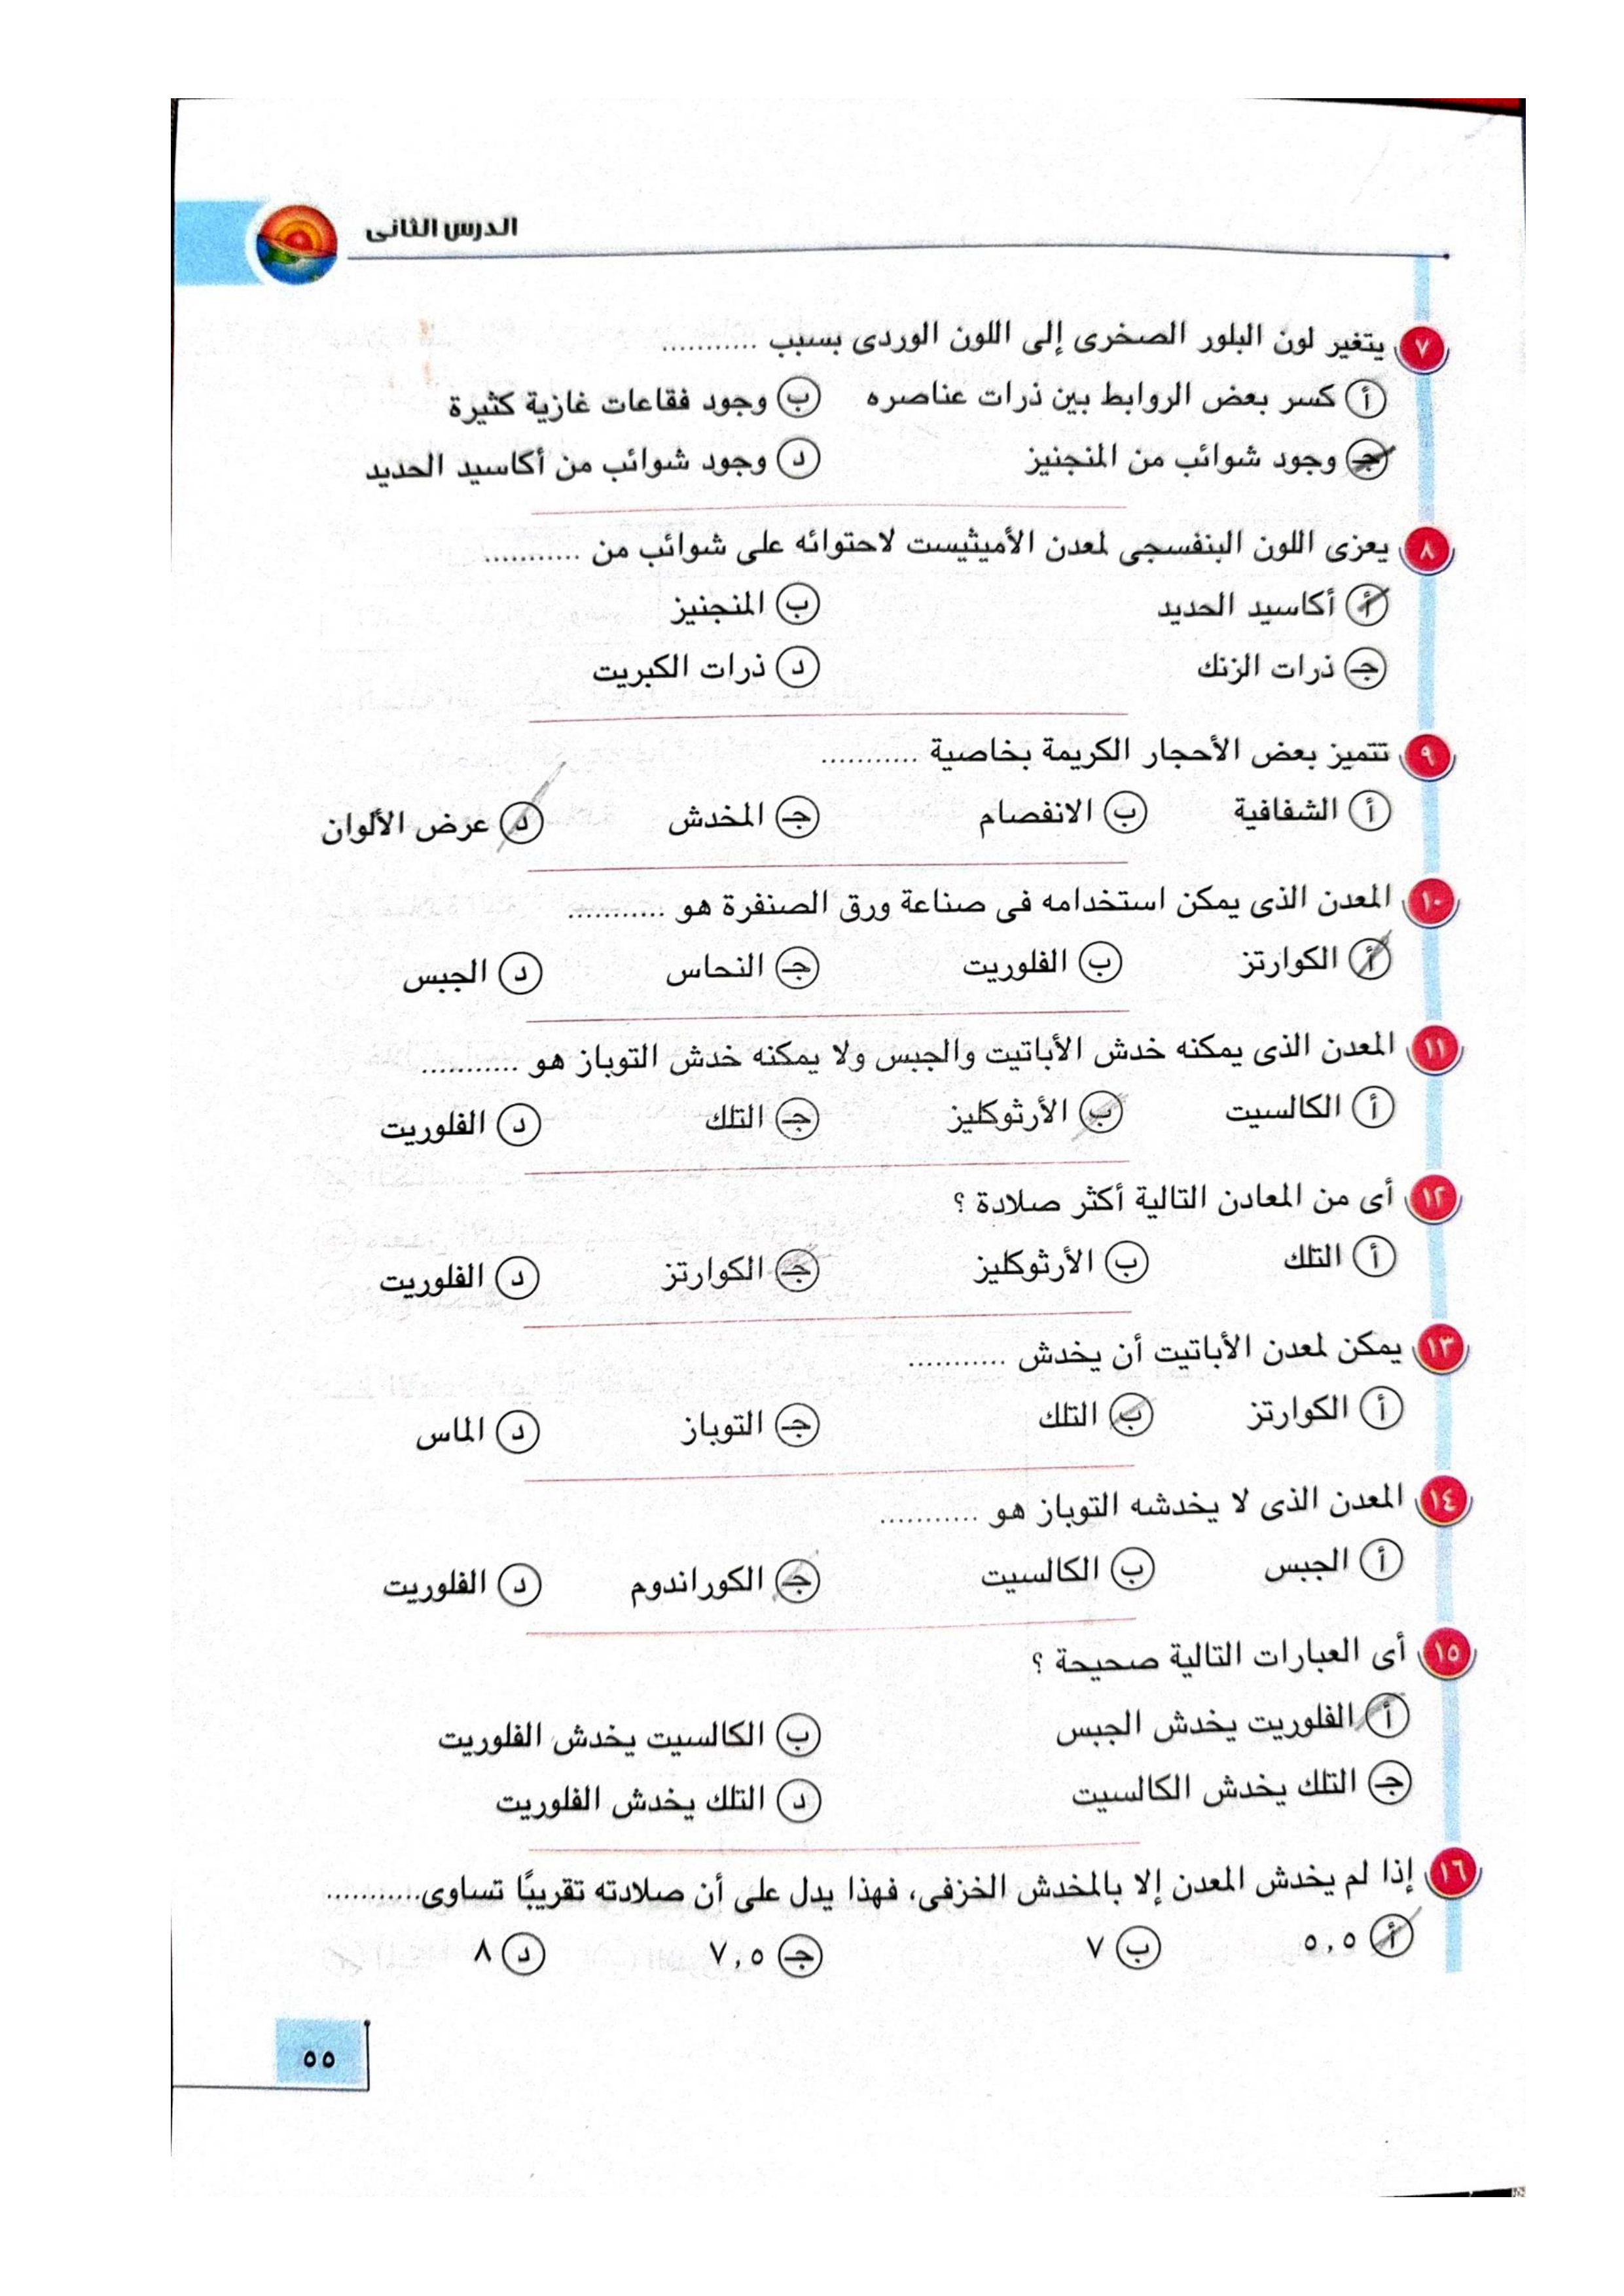 الدرس الثانى
٧ يتغير لون البلور الصخرى إلى اللون الوردى بسبب ...........
أ كسر بعض الروابط بين ذرات عناصره ب وجود فقاعات غازية كثيرة
جـ وجود شوائب من المنجنيز د وجود شوائب من أكاسيد الحديد
٨ يعزى اللون البنفسجى لمعدن الأميثيست لاحتوائه على شوائب من ...........
أ أكاسيد الحديد ب المنجنيز
جـ ذرات الزنك د ذرات الكبريت
٩ تتميز بعض الأحجار الكريمة بخاصية ...........
أ الشفافية ب الانفصام جـ المخدش د عرض الألوان
١٠ المعدن الذى يمكن استخدامه فى صناعة ورق الصنفرة هو ...........
أ الكوارتز ب الفلوريت جـ النحاس د الجبس
١١ المعدن الذى يمكنه خدش الأباتيت والجبس ولا يمكنه خدش التوباز هو ...........
أ الكالسيت ب الأرثوكليز جـ التلك د الفلوريت
١٢ أى من المعادن التالية أكثر صلادة ؟
أ التلك ب الأرثوكليز جـ الكوارتز د الفلوريت
١٣ يمكن لمعدن الأباتيت أن يخدش ...........
أ الكوارتز ب التلك جـ التوباز د الماس
١٤ المعدن الذى لا يخدشه التوباز هو ...........
أ الجبس ب الكالسيت جـ الكوراندوم د الفلوريت
١٥ أى العبارات التالية صحيحة ؟
أ الفلوريت يخدش الجبس ب الكالسيت يخدش الفلوريت
جـ التلك يخدش الكالسيت د التلك يخدش الفلوريت
١٦ إذا لم يخدش المعدن إلا بالمخدش الخزفى، فهذا يدل على أن صلادته تقريبًا تساوى...........
أ ٥,٥ ب ٧ جـ ٧,٥ د ٨
٥٥